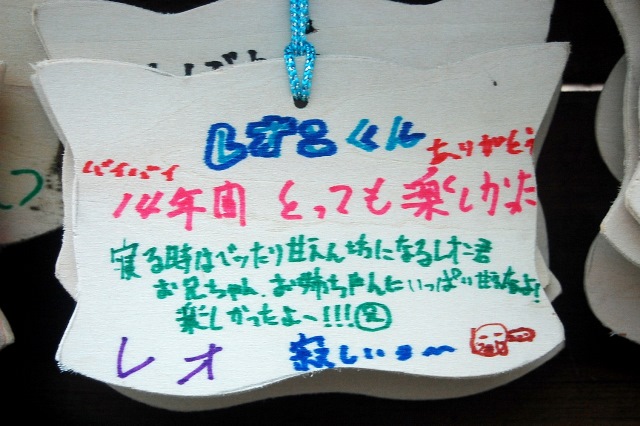 レオ君くん
バイバイ
ありがとう
14年間 とっても楽しかた
寝る時はべったり甘えん坊になるレオ君
お兄ちゃん、お姉ちゃんにいっぱい甘えたよ!
楽しかったよ〜!!!兄
レオ 寂しいョ〜